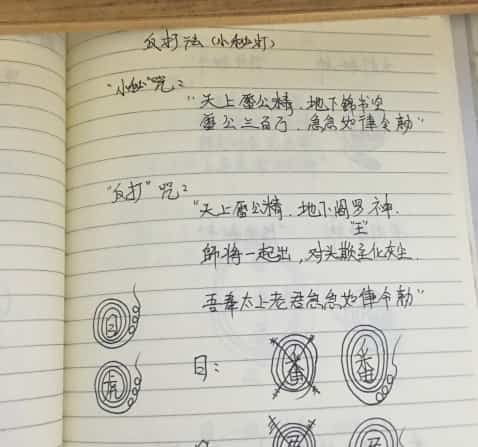 反打法(小秘打)
"小秘"咒:
"天上雷公精.地下锦书空
雷公三百万.急急如律令勅"
"反打"咒:
"天上雷公精.地下阎罗神.
"王"
師将一起出,对头欺主化灰尘.
吾奉太上老君急急如律令勅"
日:
番
番
虎